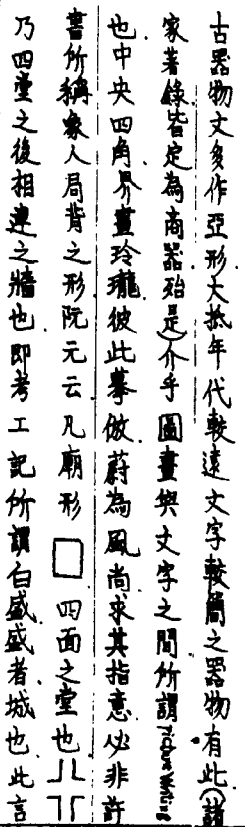 古器物文多作亞形大抵年代較遠文字較簡之器物有此(諸
家著錄皆定為商器殆是)介乎圖畫與文字之間所謂picture writing
也中央四角界畫玲瓏彼此摹倣蔚為風尚求其指意必非許
書所稱象人局背之形阮元云凡廟形囗四面之堂也
乃四堂之後相連之牆也即考工記所謂白盛盛者城也此言